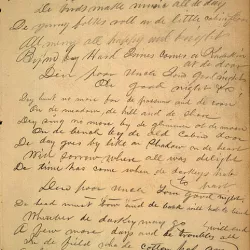 De birds make music all de day
De young folks roll on de little cabin floor
All merry, all happy and bright
By and by Hard Times comes a knocking
at de door
Den poor Uncle Tom good night
Oh good night
Dey hunt no more for de possum and de coon
On de meadow, de hill and de shore
Dey sing no more by de glimmer of de moon
On de bench by de old cabin door
De day goes by like an Shadow on de heart
Wid sorrow where all was delight
De time has come when de darkeys hab
to part
Den poor Uncle Tom good night
De head must bow and de back will hab to bend
Wherever de darkey may go
A few more days and de troubles all
In de field where sugar